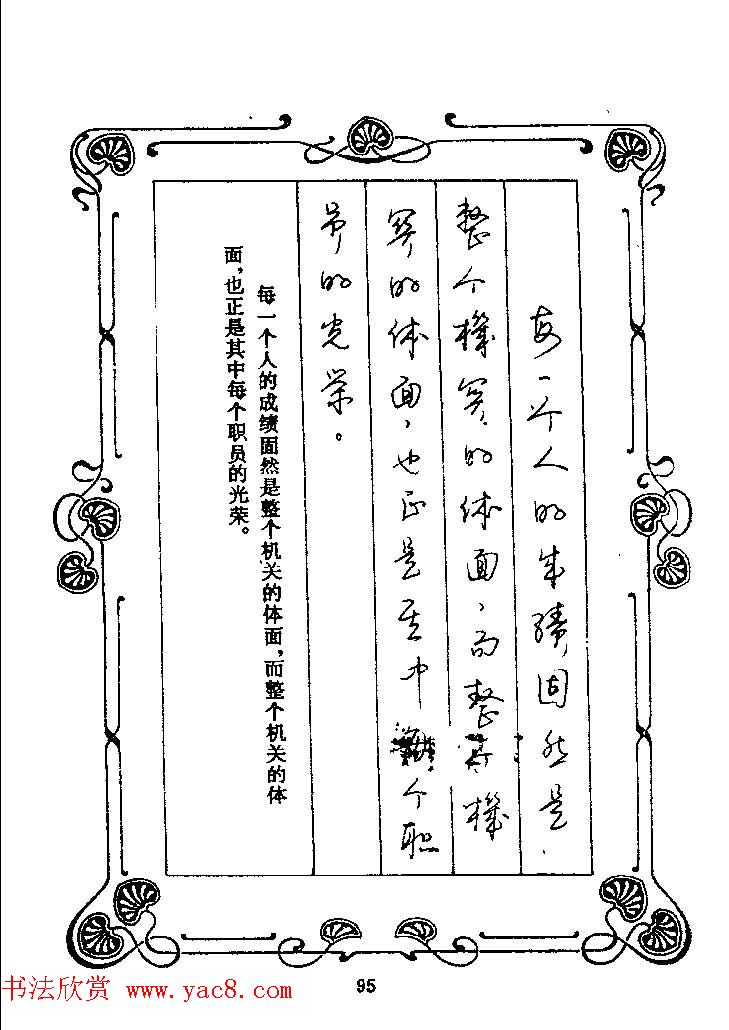 每一个人的成績固然是
整个機関的体面，而整个機
関的体面，也正是其中个职
员的光荣。
每一个人的成绩固然是整个机关的体面，而整个机关的体
面，也正是其中每个职员的光荣。
95
书法欣赏 www.yac8.com